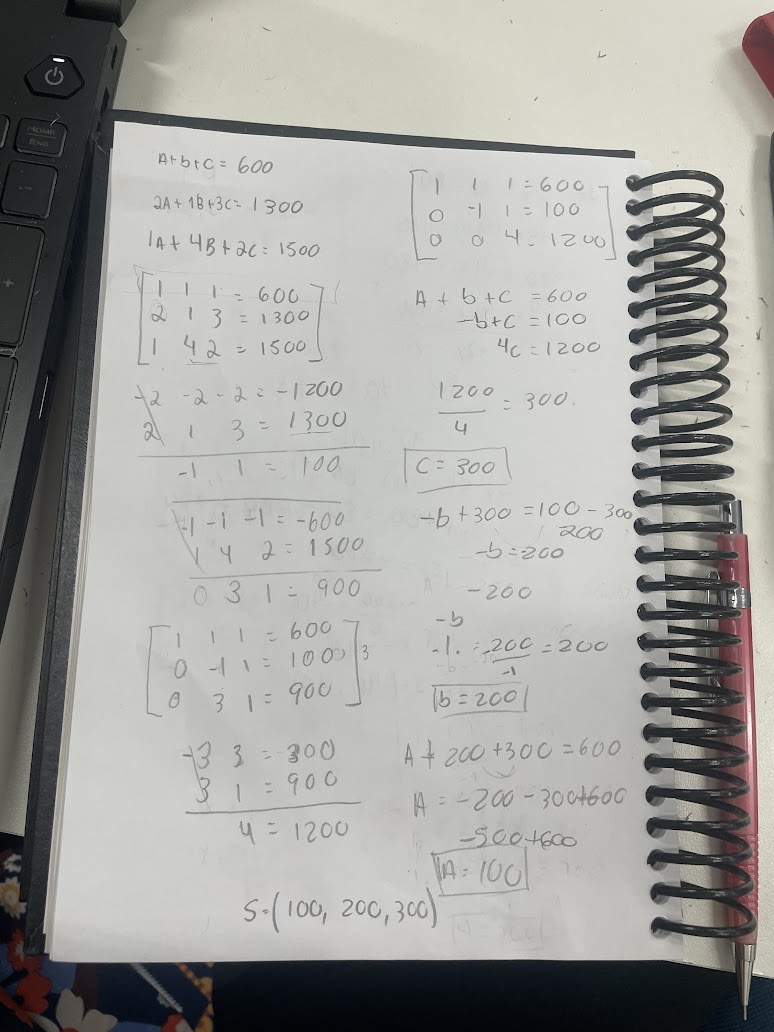 HOME
END
A+b+C= 600
2A+1B+3C= 1300
1A+ 4B+2C= 1500
1 1 1 = 600
2 1 3 = 1300
1 4 2 = 1500
-2 -2 -2 = -1200
2 1 3 = 1300
-1 1 = 100
-1 -1 -1 = -600
1 4 2 = 1500
0 3 1 = 900
1 1 1 = 600
0 -1 1 = 100 3
0 3 1 = 900
-3 3 = 300
3 1 = 900
4 = 1200
S=(100, 200, 300)
1 1 1 = 600
0 -1 1 = 100
0 0 4 = 1200
A + b + C = 600
-b+C = 100
4C = 1200
1200
4
= 300
C = 300
-b + 300 = 100 - 300
200
-b = -200
-200
-b
-1. = -200 = 200
-1
b = 200
A + 200 + 300 = 600
A = -200 - 300+600
-500+600
A = 100